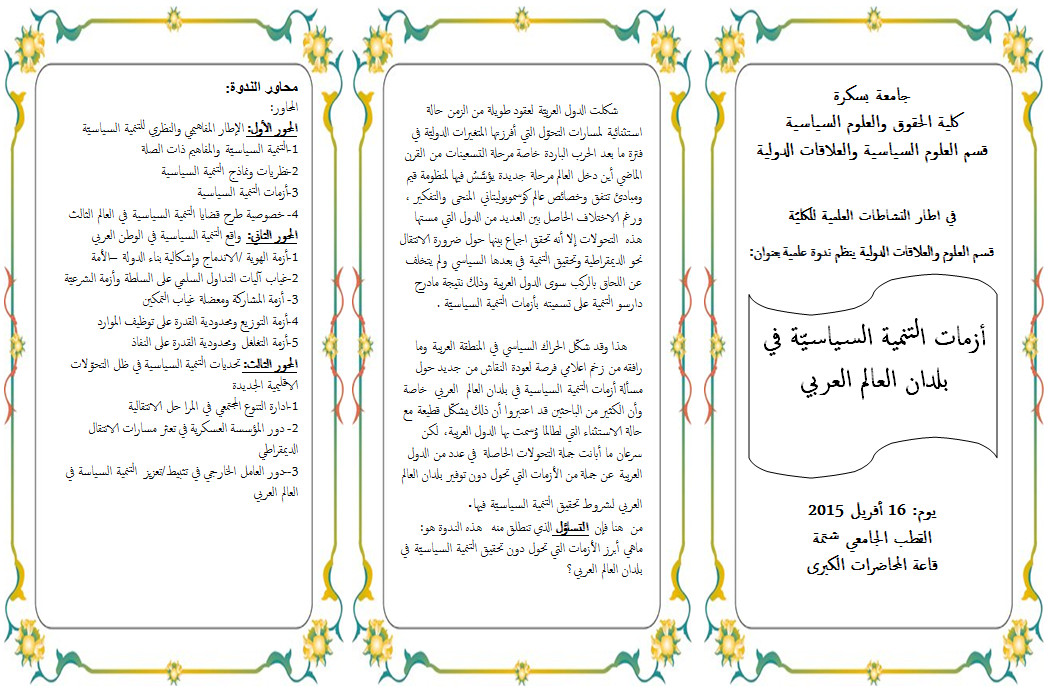 جامعة بسكرة
كلية الحقوق والعلوم السياسية
قسم العلوم السياسية والعلاقات الدولية
في اطار النشاطات العلمية للكليّة
قسم العلوم والعلاقات الدولية ينظم ندوة علمية بعنوان:
أزمات التنمية السياسيّة في
بلدان العالم العربي
يوم: 16 أفريل 2015
القطب الجامعي شتمة
قاعة المحاضرات الكبرى
شكلت الدول العربيّة لعقود طويلة من الزمن حالة
استثنائية لمسارات التحوّل التي أفرزتها المتغيرات الدوليّة في
فترة ما بعد الحرب الباردة خاصة مرحلة التسعينات من القرن
الماضي أين دخل العالم مرحلة جديدة يؤسَّسُ فيها لمنظومة قيم
ومبادئ تتفق وخصائص عالم كوسموبوليتاني المنحى والتفكير ،
ورغم الاختلاف الحاصل بين العديد من الدول التي مستها
هذه التحولات إلا أنه تحقق اجماع بينها حول ضرورة الانتقال
نحو الديمقراطية وتحقيق التنمية في بعدها السياسي ولم يتخلف
عن اللحاق بالركب سوى الدول العربية وذلك نتيجة مادرج
دارسو التنمية على تسميته بأزمات التنمية السياسيّة .
هذا وقد شكّل الحراك السياسي في المنطقة العربية وما
رافقه من زخم اعلامي فرصة لعودة النقاش من جديد حول
مسألة أزمات التنمية السياسية في بلدان العالم العربي خاصة
وأن الكثير من الباحثين قد اعتبروا أن ذلك يشكّل قطيعة مع
حالة الاستثناء التي لطالما وُسمت بها الدول العربية، لكن
سرعان ما أبانت جملة التحولات الحاصلة في عدد من الدول
العربية عن جملة من الأزمات التي تحول دون توفير بلدان العالم
العربي لشروط تحقيق التنمية السياسيّة فيها.
من هنا فإن التساؤل الذي تنطلق منه هذه الندوة هو:
ماهي أبرز الأزمات التي تحول دون تحقيق التنمية السياسيّة في
بلدان العالم العربي؟
محاور الندوة:
المحاور:
المحور الأول: الإطار المفاهيمي والنظري للتنمية السياسيّة
1-التنمية السياسيّة والمفاهيم ذات الصلة
2-نظريات ونماذج التنمية السياسية
3-أزمات التنمية السياسية
4- خصوصية طرح قضايا التنمية السياسية في العالم الثالث
المحور الثاني: واقع التنمية السياسية في الوطن العربي
1-أزمة الهوية /الاندماج وإشكالية بناء الدولة –الأمة
2-غياب آليات التداول السلمي على السلطة وأزمة الشرعيّة
3- أزمة المشاركة ومعضلة غياب التمكين
4-أزمة التوزيع ومحدودية القدرة على توظيف الموارد
5-أزمة التغلغل ومحدودية القدرة على النفاذ
المحور الثالث: تحديات التنمية السياسية في ظل التحوّلات
الاقليمية الجديدة
1-ادارة التنوع المجتمعي في المرا حل الانتقالية
2- دور المؤسسة العسكرية في تعثر مسارات الانتقال
الديمقراطي
3–دور العامل الخارجي في تثبيط/تعزيز التنمية السياسة في
العالم العربي